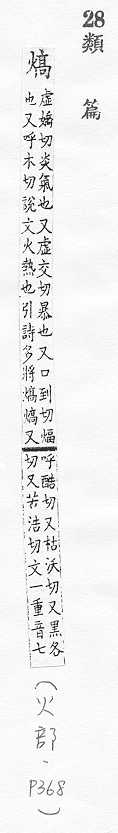 28類篇
熇
虛嬌切炎氣也又虛交切暴也又口到切煏
也又呼木切說文火熱也引詩多將熇熇又
呼酷切又枯沃切又黑各
切又苦浩切文一重音七
(火部、P368)